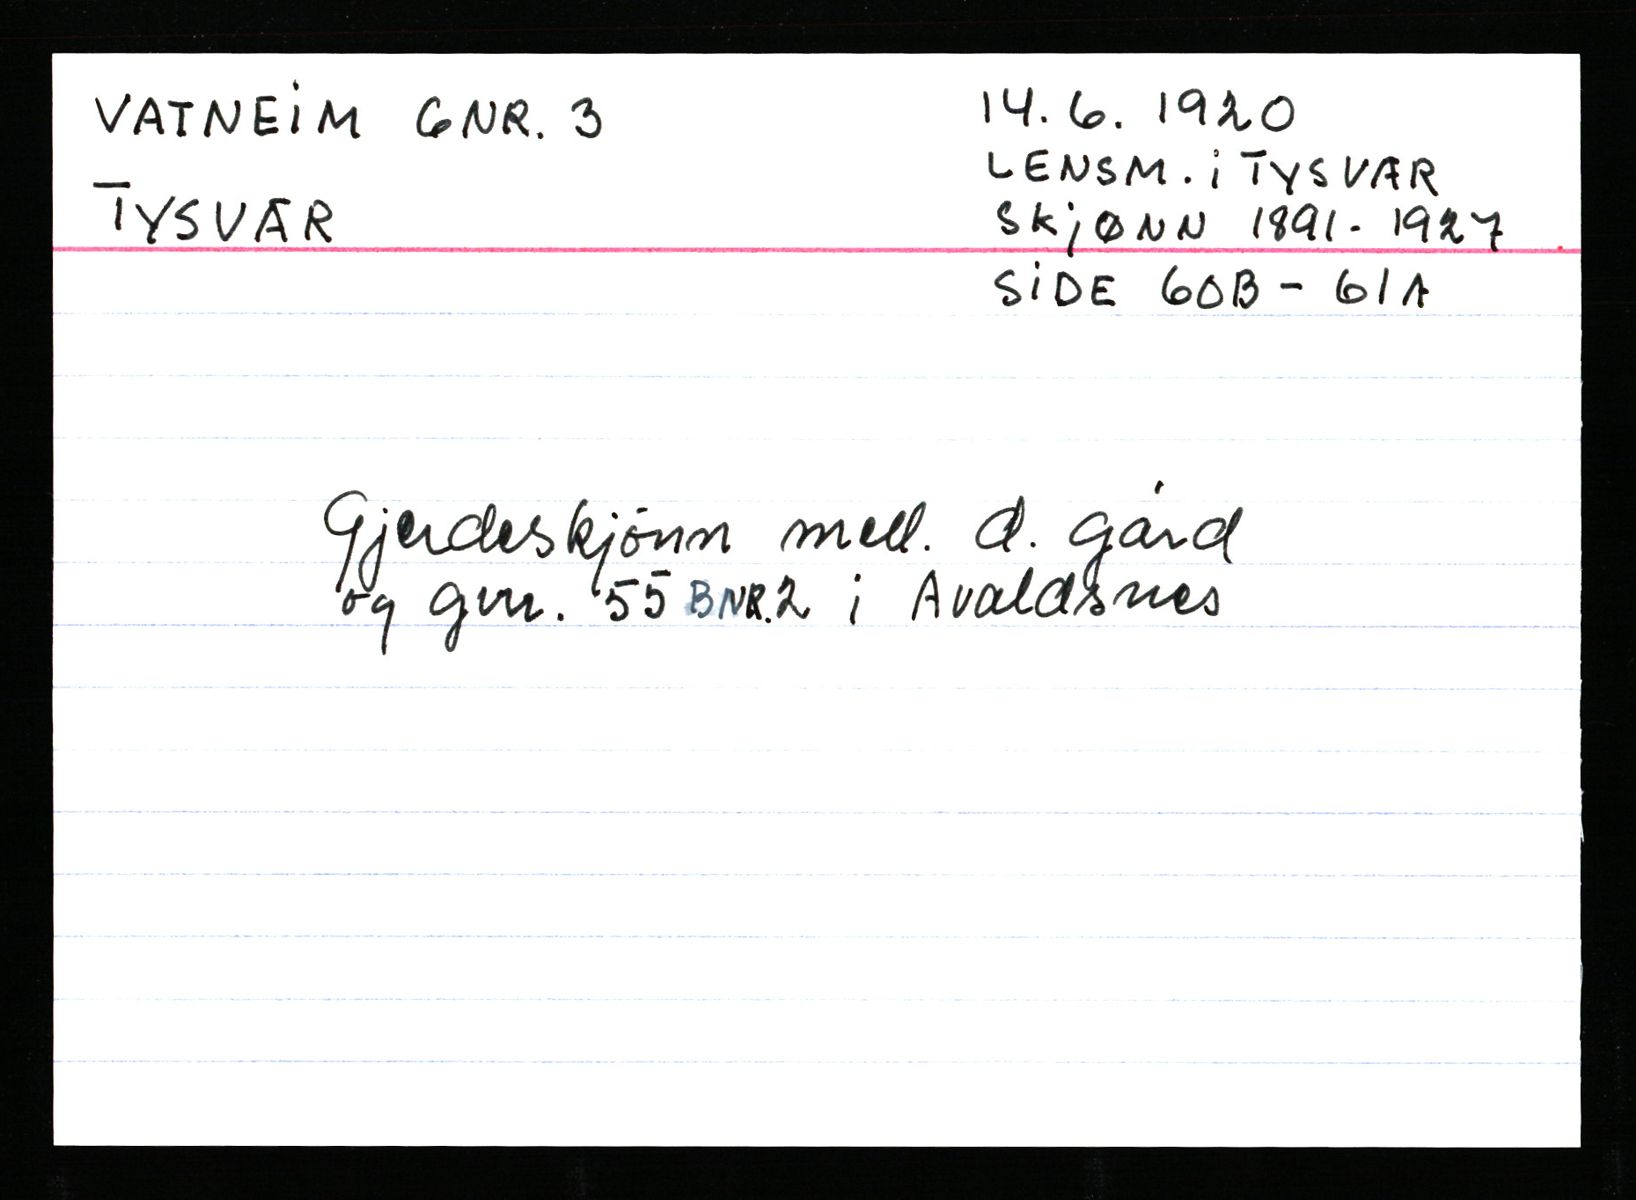 VATNEIM GNR. 3
TYSVÆR
14.6.1920
LENSM. i TYSVÆR
SKJØNN 1891-1927
SIDE 60B - 61A
Gjerdeskjønn mell. d. gård
og gnr. 55 BNR.2 i Avaldsnes